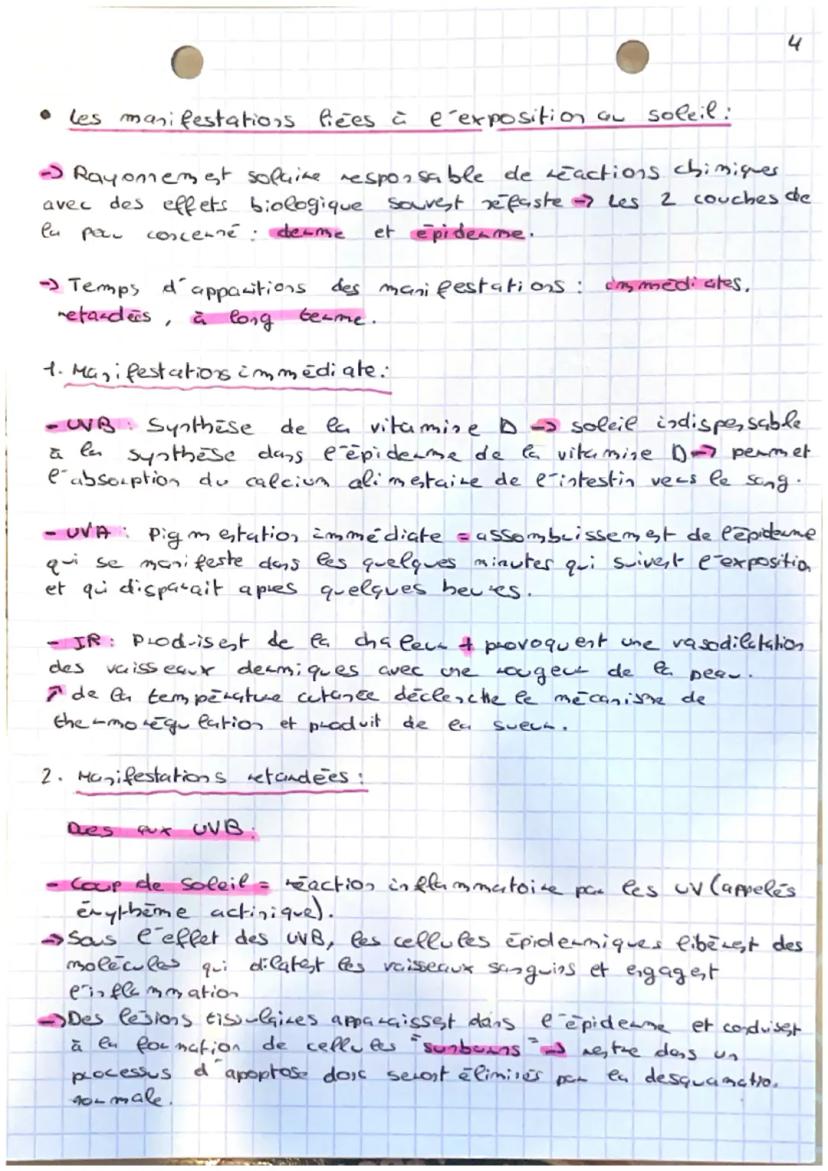 4
• Les manifestations liées à l'exposition au soleil :
→ Rayonnement solaire responsable de réactions chimiques
avec des effets biologique souvent néfaste → Les 2 couches de
la peau concerné : derme et épiderme.
→ Temps d'apparitions des manifestations : immédiates,
retardées, à long terme.
1. Manifestations immédiate :
- UVB : Synthèse de la vitamine D → soleil indispensable
à la synthèse dans l'épiderme de la vitamine D → permet
l'absorption du calcium alimentaire de l'intestin vers le sang.
- UVA : Pigmentation immédiate = assombrissement de l'épiderme
qui se manifeste dans les quelques minutes qui suivent l'exposition
et qui disparait apres quelques heures.
- IR : Produisent de la chaleur + provoquent une vasodilatation
des vaisseaux dermiques avec une rougeur de la peau.
↗ de la température cutanée déclenche le mécanisme de
thermorégulation et produit de la sueur.
2. Manifestations retardées :
Dues aux UVB :
- Coup de soleil = réaction inflammatoire par les UV (appelés
érythème actinique).
→ Sous l'effet des UVB, les cellules épidermiques libèrent des
molécules qui dilatent les vaisseaux sanguins et engagent
l'inflammation
→ Des lésions tissulaires apparaissent dans l'épiderme et conduisent
à la formation de cellules "sunburns" → rentre dans un
processus d'apoptose donc seront éliminés par la desquamation
normale.